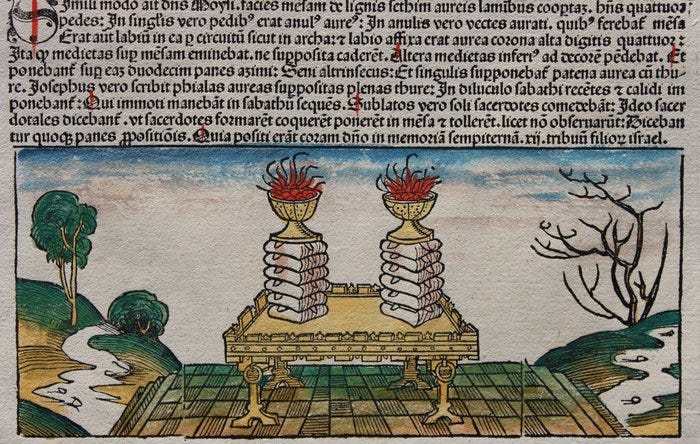 Simili modo ait dñs Moysi. facies mẽsam de lignis sethim aureis laminibus cooptaz. hñs quattuor
pedes: In singl'is vero pedibꝰ erat anulꝰ aureꝰ: In anulis vero vectes aurati. quibꝰ ferebat̃ mẽsa
Erat aũt labiũ in ea ꝑ circuitũ sicut in archa: ⁊ labio affixa erat aurea corona alta digitis quattuor:
Ita ꝙ medietas suꝑ mẽsam eminebat. ne supposita caderẽt. Altera medietas inferiꝰ ad decorẽ pẽdebat. Et
ponebant̃ suꝑ eaz duodecim panes azimi: Seni altrinsecus: Et singulis supponebat̃ patena aurea cũ thu-
re. Josephus vero scribit phialas aureas suppositas plenas thure: In diluculo sabathi recẽtes ⁊ calidi im
ponebant̃: Qui immoti manebãt in sabathũ sequẽs. Sublatos vero soli sacerdotes comedebãt: Ideo sacer
dotales dicebant̃. vt sacerdotes formarẽt coquerẽt ponerẽt in mẽsa ⁊ tollerẽt. licet nõ obseruarũt: Dicebant
tur quoqꝫ panes ꝓpositiõis. Quia positi erãt coram dño in memoriã sempiternã. xij. tribuũ filioꝝ israel.